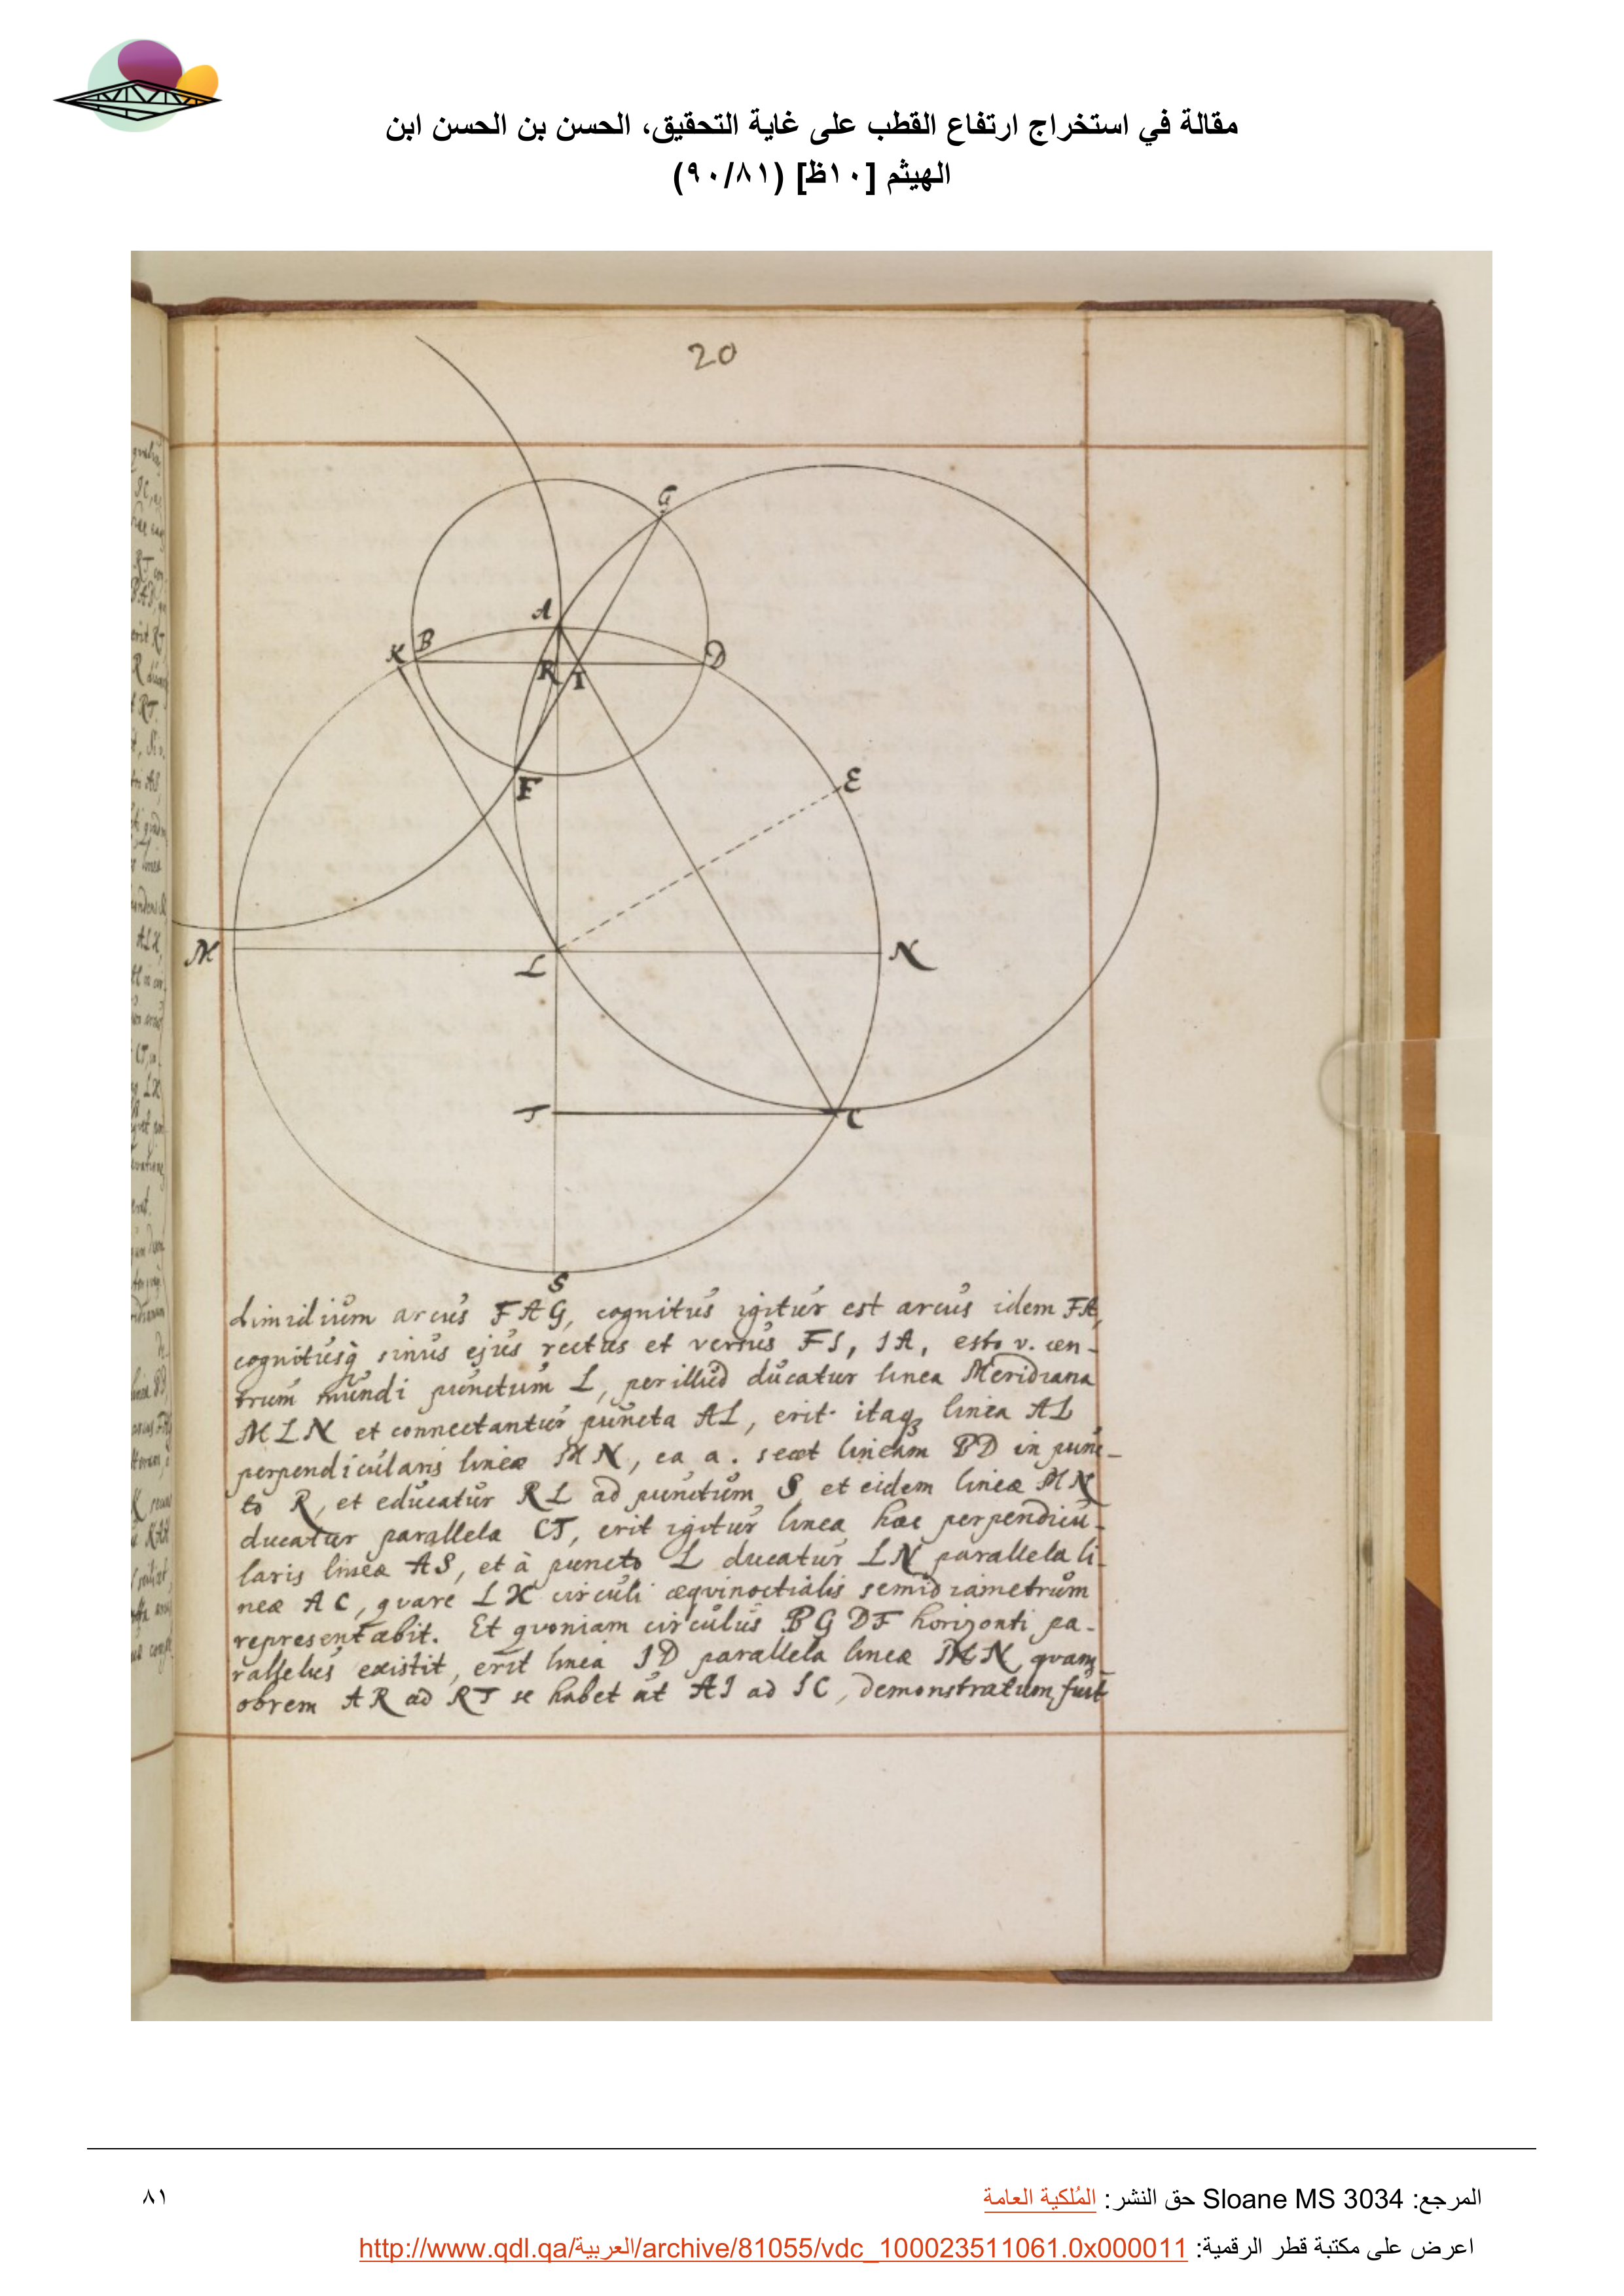 مقالة في استخراج ارتفاع القطب على غاية التحقيق، الحسن بن الحسن ابن
الهيثم [١٠ظ] (٩٠/٨١)
20
G
A
K B
D
R I
F
E
M
L
N
T
C
S
dimidium arcus FAG, cognitus igitur est arcus idem FA,
cognitusq̀ sinus ejus rectus et versus FI, IA, esto v. cen-
trum mundi punctum L, per illud ducatur linea Meridiana
MLN et connectantur puncta AL, erit itaqꝫ linea AL
perpendicularis lineæ MN, ea a. secet lineam BD in punc-
to R, et educatur RL ad punctum S, et eidem lineæ MN
ducatur parallela CT, erit igitur linea hæc perpendicu-
laris lineæ AS, et à puncto L ducatur LN parallela li-
neæ AC, quare LK circuli æqvinoctialis semidiametrum
representabit. Et qvoniam circulus BGDF horizonti pa-
rallelus existit, erit linea ID parallela lineæ MN, quam-
obrem AR ad RT se habet ut AI ad IC, demonstratum fuit
المرجع: Sloane MS 3034 حق النشر: المُلكية العامة
٨١
اعرض على مكتبة قطر الرقمية: http://www.qdl.qa/العربية/archive/81055/vdc_100023511061.0x000011